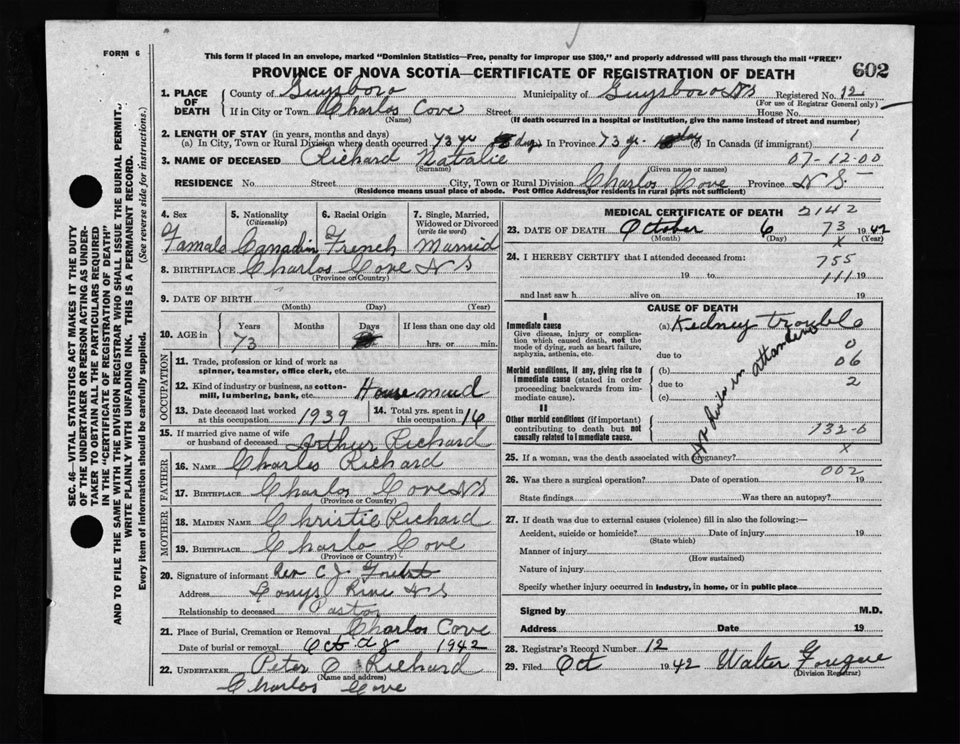 FORM 6
This form if placed in an envelope, marked "Dominion Statistics—Free, penalty for improper use $300," and properly addressed will pass through the mail "FREE"
PROVINCE OF NOVA SCOTIA—CERTIFICATE OF REGISTRATION OF DEATH 602
1. PLACE OF DEATH County of Guysboro Municipality of Guysboro NS Registered No. 12
(For use of Registrar General only)
If in City or Town Charlos Cove Street House No.
(Name) (If death occurred in a hospital or institution, give the name instead of street and number)
2. LENGTH OF STAY (in years, months and days)
(a) In City, Town or Rural Division where death occurred 73 yr days In Province 73 yr. day (c) In Canada (if immigrant) 1
3. NAME OF DECEASED Richard Natalie 07-12-00
(Surname) (Given name or names)
RESIDENCE No. Street City, Town or Rural Division Charlos Cove Province NS
(Residence means usual place of abode. Post Office Address for residents in rural parts not sufficient)
4. Sex 5. Nationality (Citizenship) 6. Racial Origin 7. Single, Married, Widowed or Divorced (write the word)
Famale Canadin French Married
8. BIRTHPLACE Charlos Cove NS
(Province or Country)
9. DATE OF BIRTH
(Month) (Day) (Year)
10. AGE in Years Months Days If less than one day old
73 hrs. or min.
OCCUPATION
11. Trade, profession or kind of work as spinner, teamster, office clerk, etc.
12. Kind of industry or business, as cotton-mill, lumbering, bank, etc. House maid
13. Date deceased last worked at this occupation 1939 14. Total yrs. spent in this occupation 16
15. If married give name of wife or husband of deceased Arthur Richard
FATHER
16. NAME Charles Richard
17. BIRTHPLACE Charlos Cove NS
(Province or Country)
MOTHER
18. MAIDEN NAME Christie Richard
19. BIRTHPLACE Charlo Cove
(Province or Country)
20. Signature of informant Rev C. J.
Address NS
Relationship to deceased Pastor
21. Place of Burial, Cremation or Removal Charlos Cove
Date of burial or removal Oct 8 1942
22. UNDERTAKER Peter C Richard
(Name and address)
Charlos Cove
MEDICAL CERTIFICATE OF DEATH 2142
23. DATE OF DEATH October 6 73 1942
(Month) (Day) x (Year)
24. I HEREBY CERTIFY that I attended deceased from: 755
19 to 111 19
and last saw h alive on 19
CAUSE OF DEATH
I
Immediate cause (a) Kidney trouble 0
Give disease, injury or complication which caused death, not the mode of dying, such as heart failure, asphyxia, asthenia, etc.
due to 0
Morbid conditions, if any, giving rise to immediate cause (stated in order proceeding backwards from immediate cause).
(b) 06
due to 2
(c)
II
Other morbid conditions (if important) contributing to death but not causally related to immediate cause.
132-0
in attandance
25. If a woman, was the death associated with pregnancy? x
002
26. Was there a surgical operation? Date of operation 19
State findings Was there an autopsy?
27. If death was due to external causes (violence) fill in also the following:—
Accident, suicide or homicide? Date of injury 19
(State which)
Manner of injury
(How sustained)
Nature of injury
Specify whether injury occurred in industry, in home, or in public place
Signed by M.D.
Address Date 19
28. Registrar's Record Number 12
29. Filed Oct 1942 Walter
(Division Registrar)
SEC. 46—VITAL STATISTICS ACT MAKES IT THE DUTY
OF THE UNDERTAKER OR PERSON ACTING AS UNDER-
TAKER TO OBTAIN ALL THE PARTICULARS REQUIRED
IN THE "CERTIFICATE OF REGISTRATION OF DEATH"
AND TO FILE THE SAME WITH THE DIVISION REGISTRAR WHO SHALL ISSUE THE BURIAL PERMIT.
WRITE PLAINLY WITH UNFADING INK. THIS IS A PERMANENT RECORD.
Every item of information should be carefully supplied. (See reverse side for instructions.)